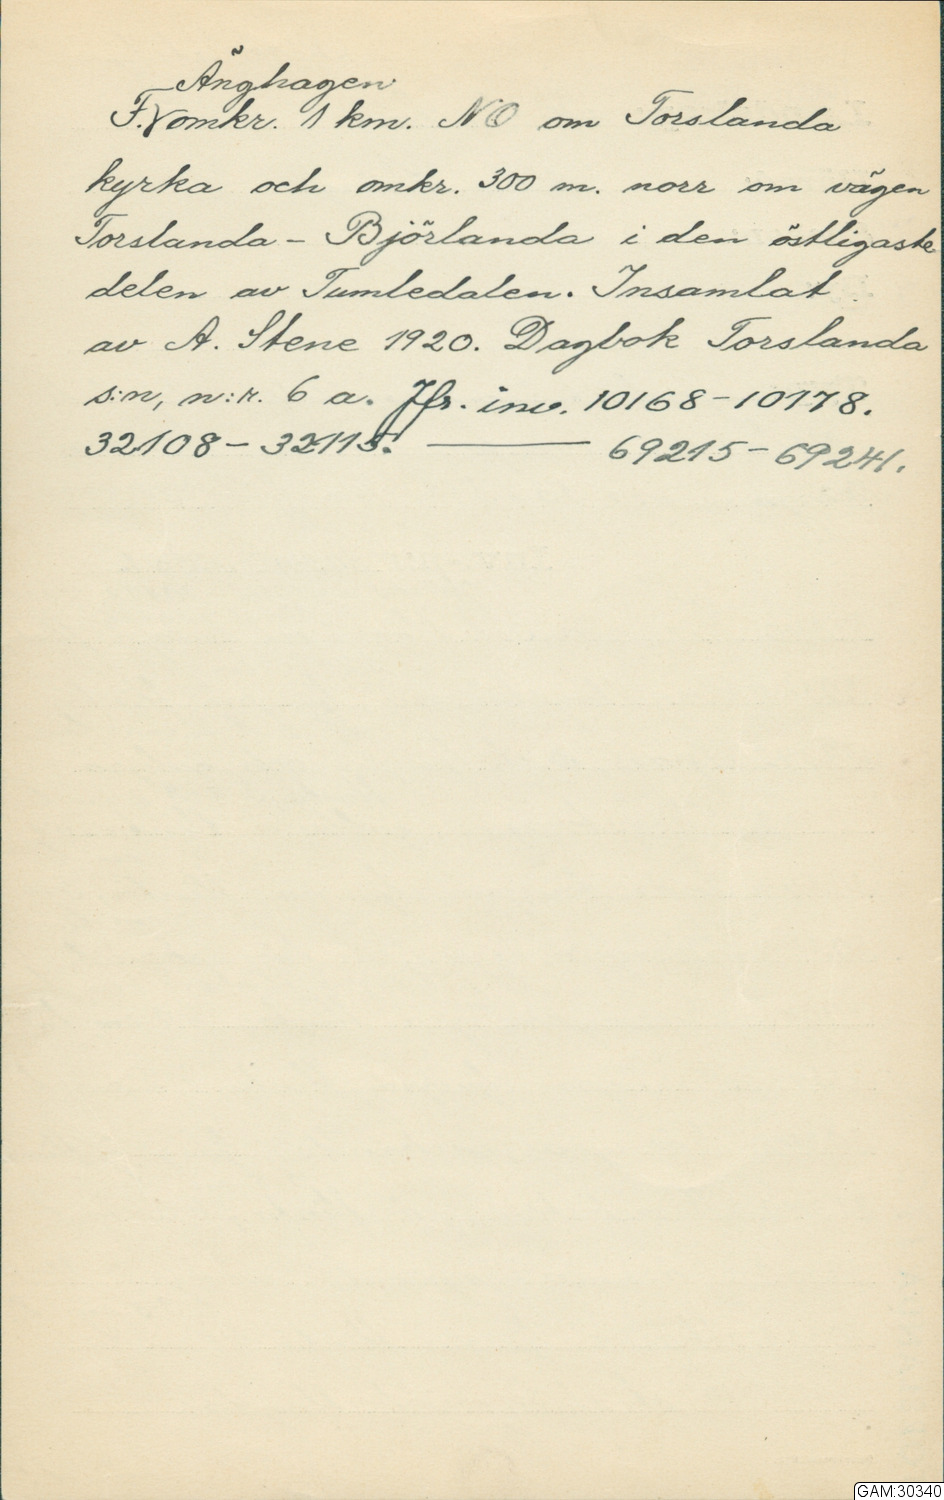 Änghagen
F. omkr. 1 km. NO om Torslanda
kyrka och omkr. 300 m. norr om vägen
Torslanda - Björlanda i den östligaste
delen av Tumledalen. Insamlat
av A. Stene 1920. Dagbok Torslanda
s:n, n:r. 6 a. Jfr. inv. 10168-10178.
32108-32115. ——— 69215-69241.
GAM:30340